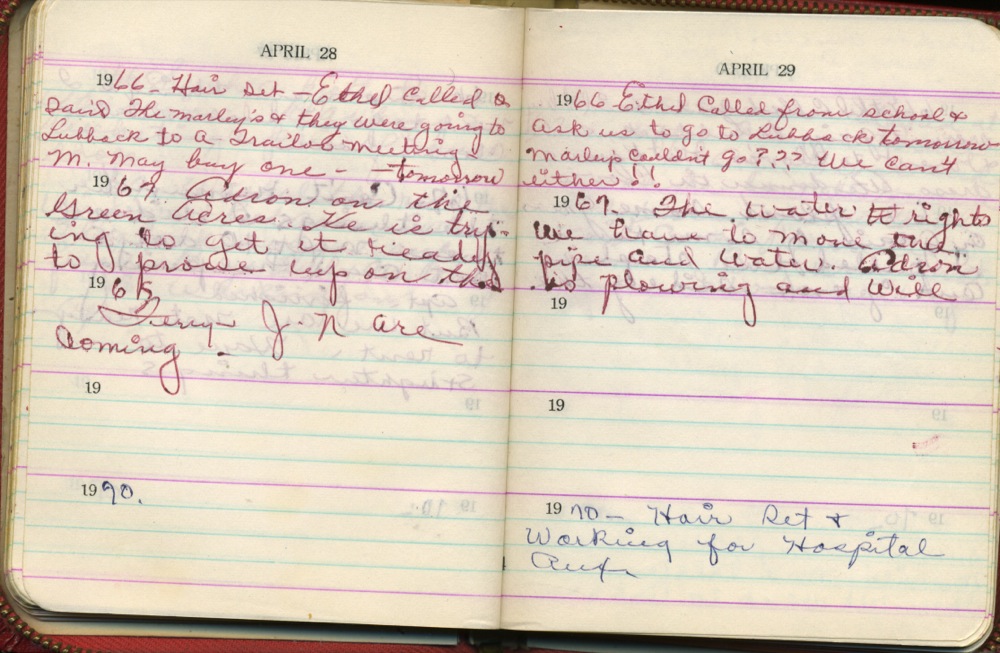 APRIL 28
1966 - Hair set - Ethel Called &
said The Marley's & they were going to
Lubback to a Trailob meeting -
M. May buy one - - tomorrow
1967. Adron on the
Green Acres. He is try-
ing to get it ready
to prove up on the
196
Terry J. N are
Coming -
19
1970.
APRIL 29
1966 Ethel Called from school &
ask us to go to Lubback tomorrow
Marleys Couldn't go??? We can't
either!!
1967. The water rights
we have to move the
pipe and water. Adron
is plowing and will
19
19
1970 - Hair Set &
Working for Hospital
Aux.